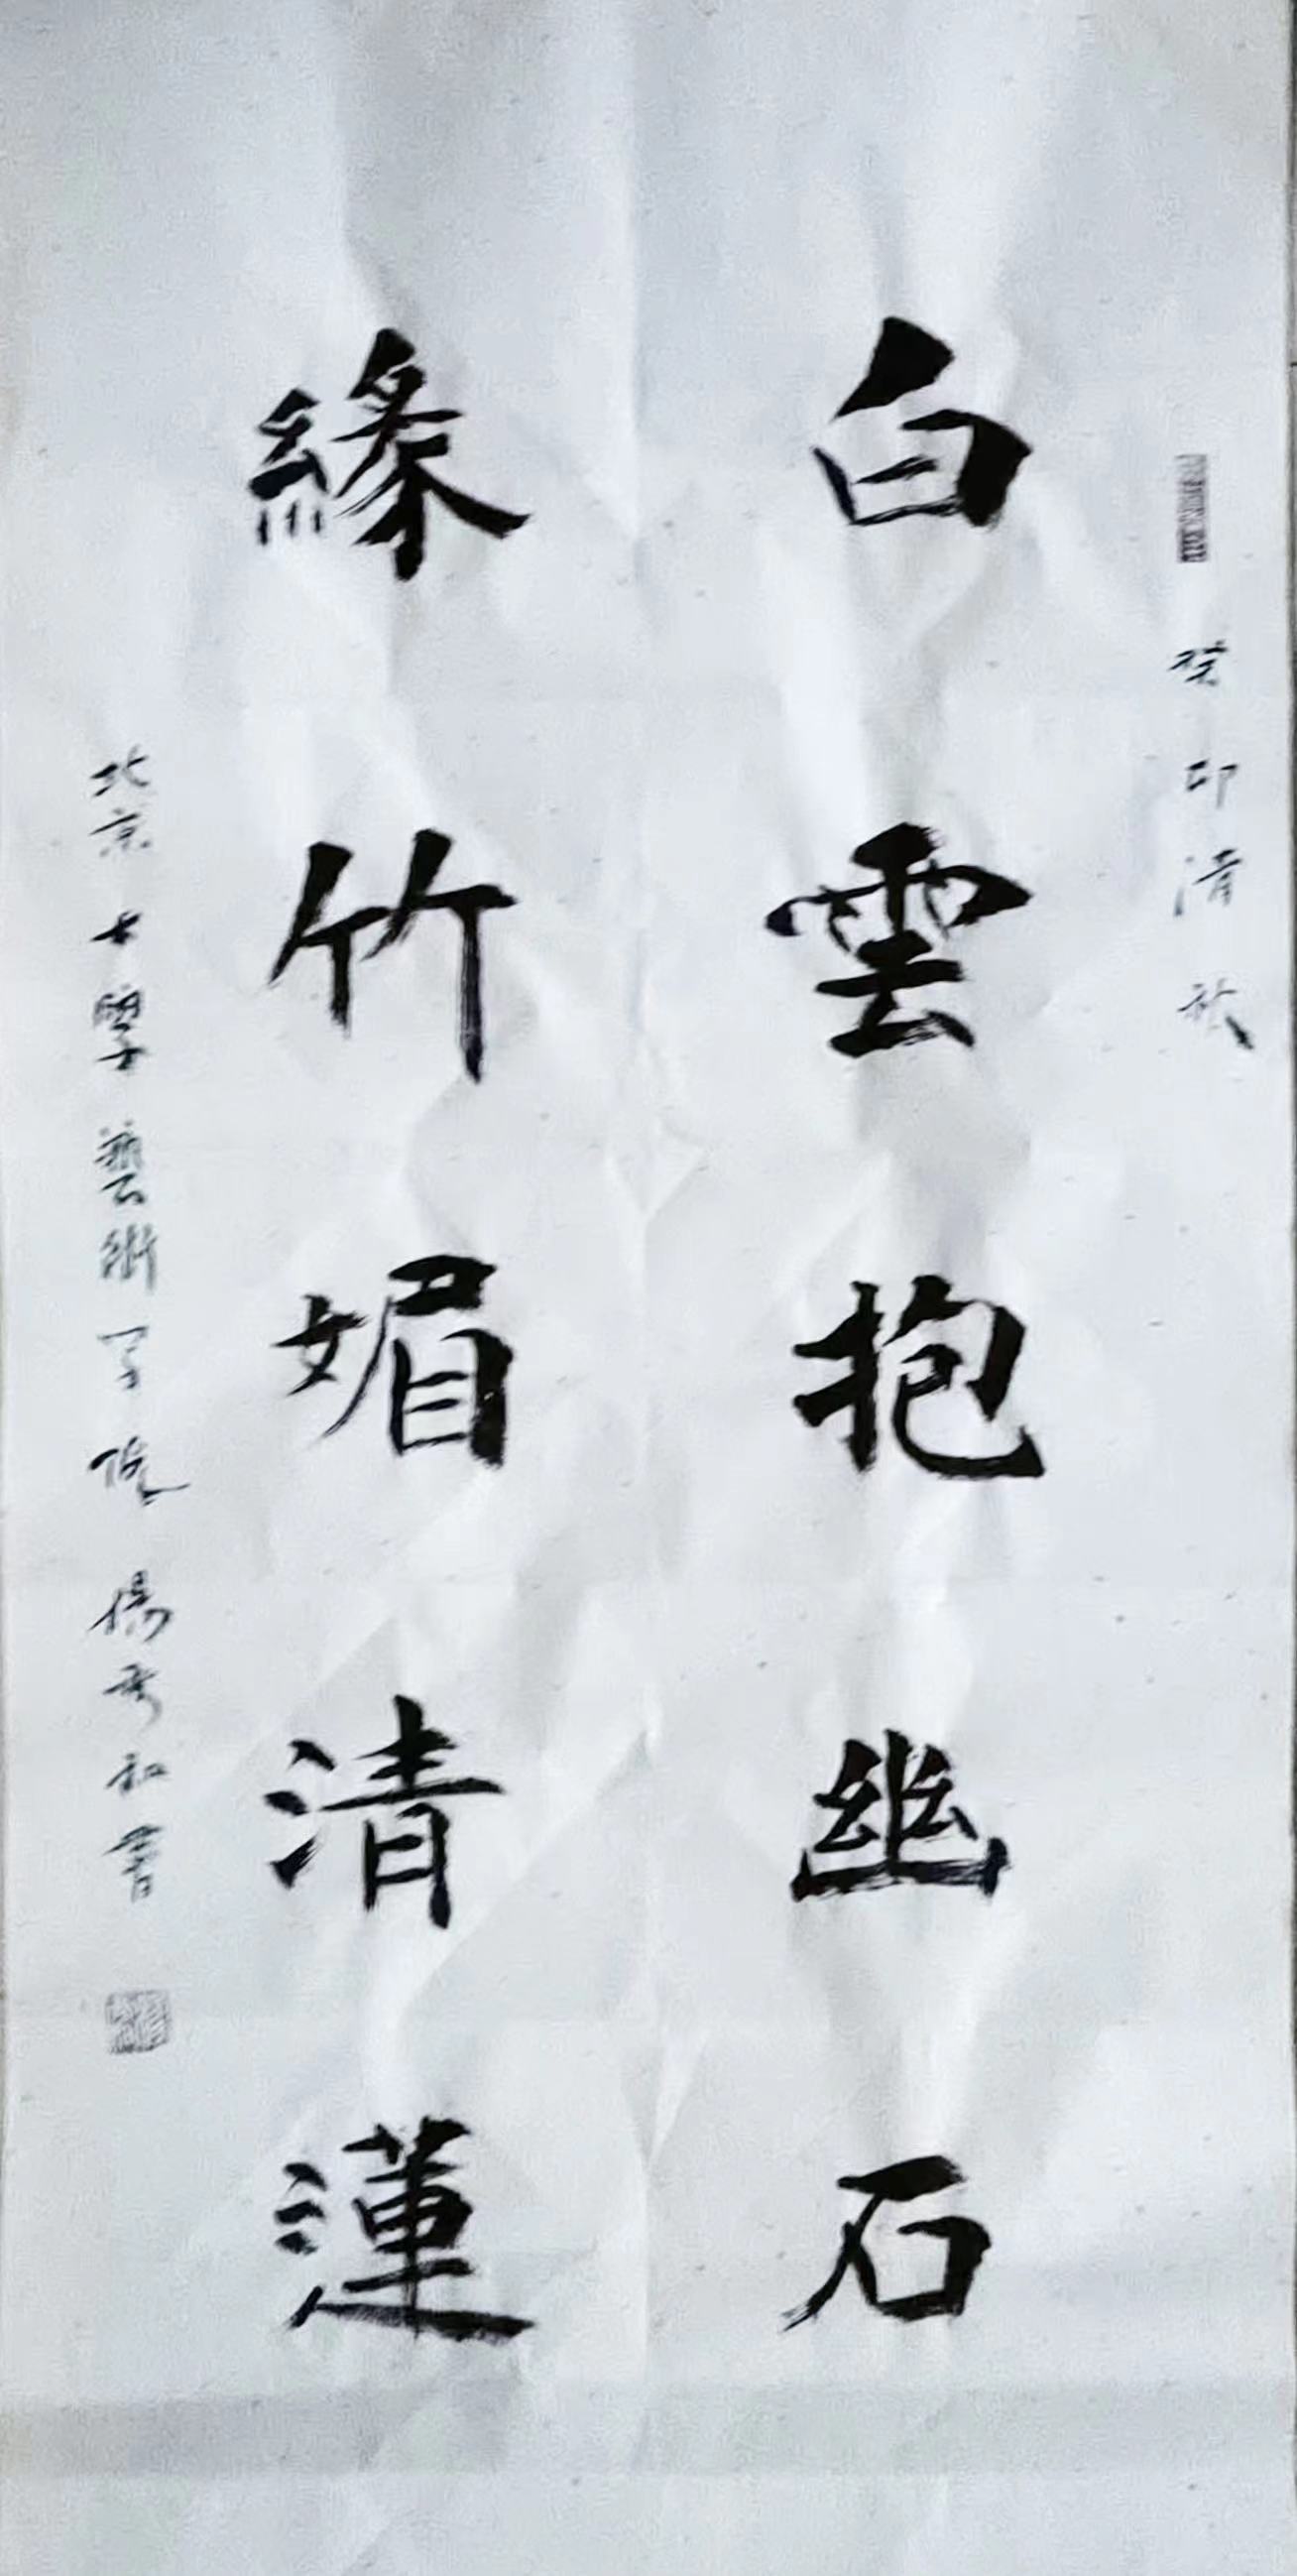 癸卯清秋
白雲抱幽石
綠竹媚清蓮
北京大學藝術学院楊秀和書